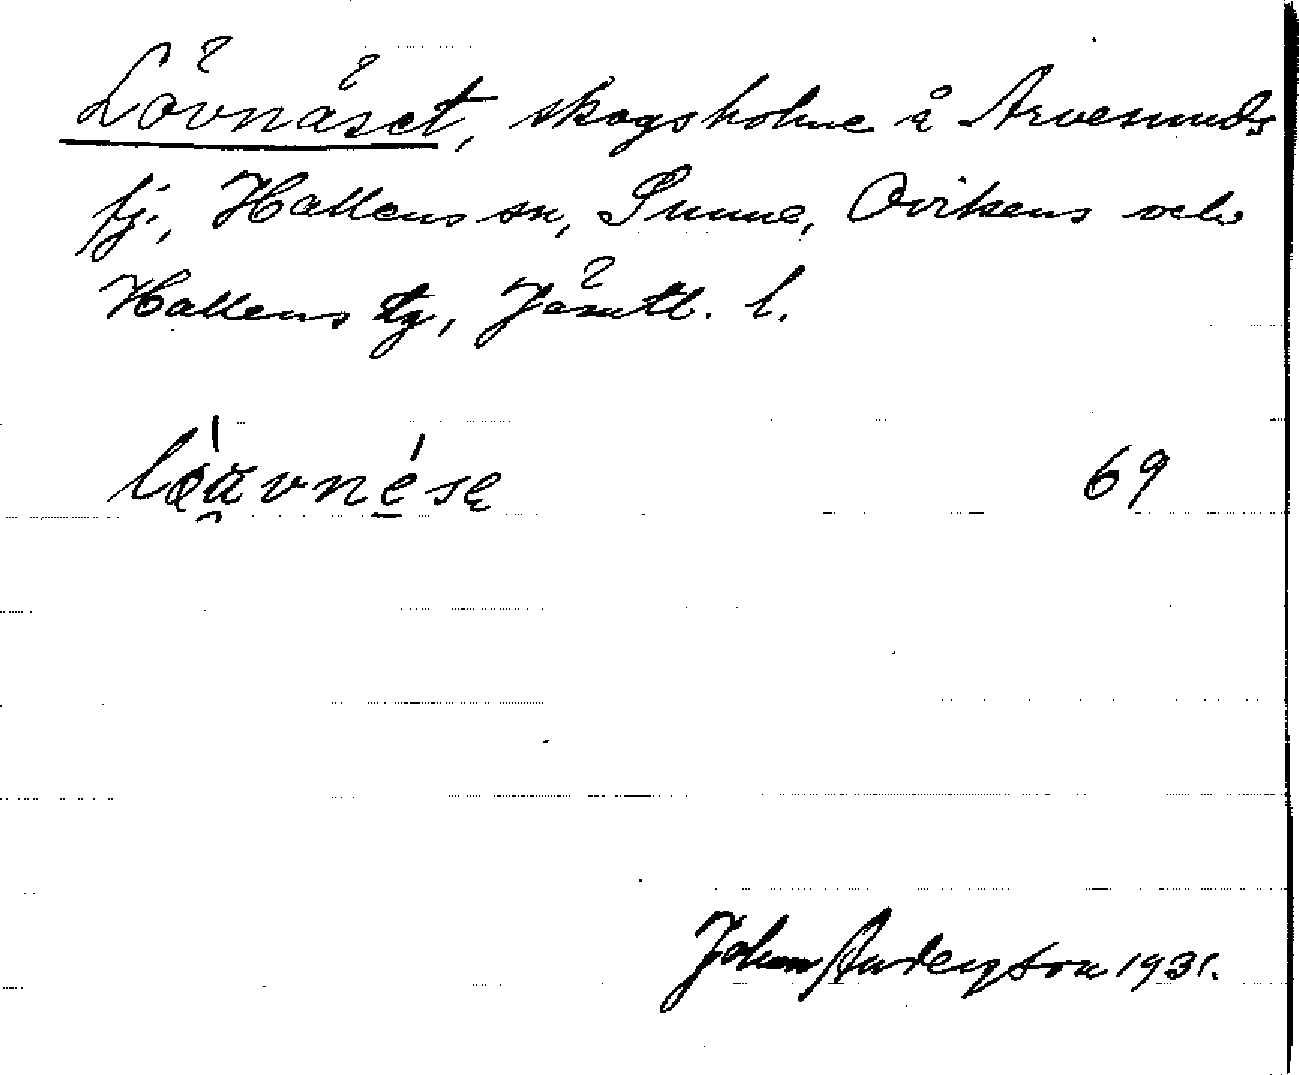 Lövnäset, skogsholme å Arvesunds
fj., Hallens sn, Sunne, Ovikens och
Hallens tg, Jämtl. l.
69
John Anderson 1931.